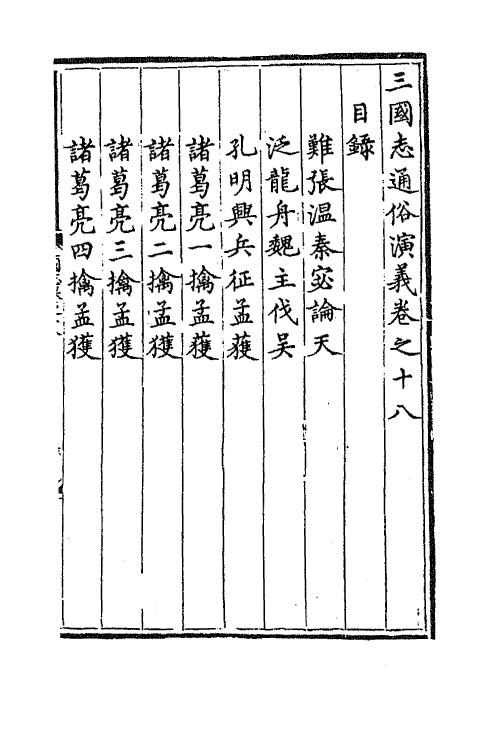 三國志通俗演義卷之十八
目錄
難張温秦宓論天
泛龍舟魏主伐吴
孔明興兵征孟獲
諸葛亮一擒孟獲
諸葛亮二擒孟獲
諸葛亮三擒孟獲
諸葛亮四擒孟獲